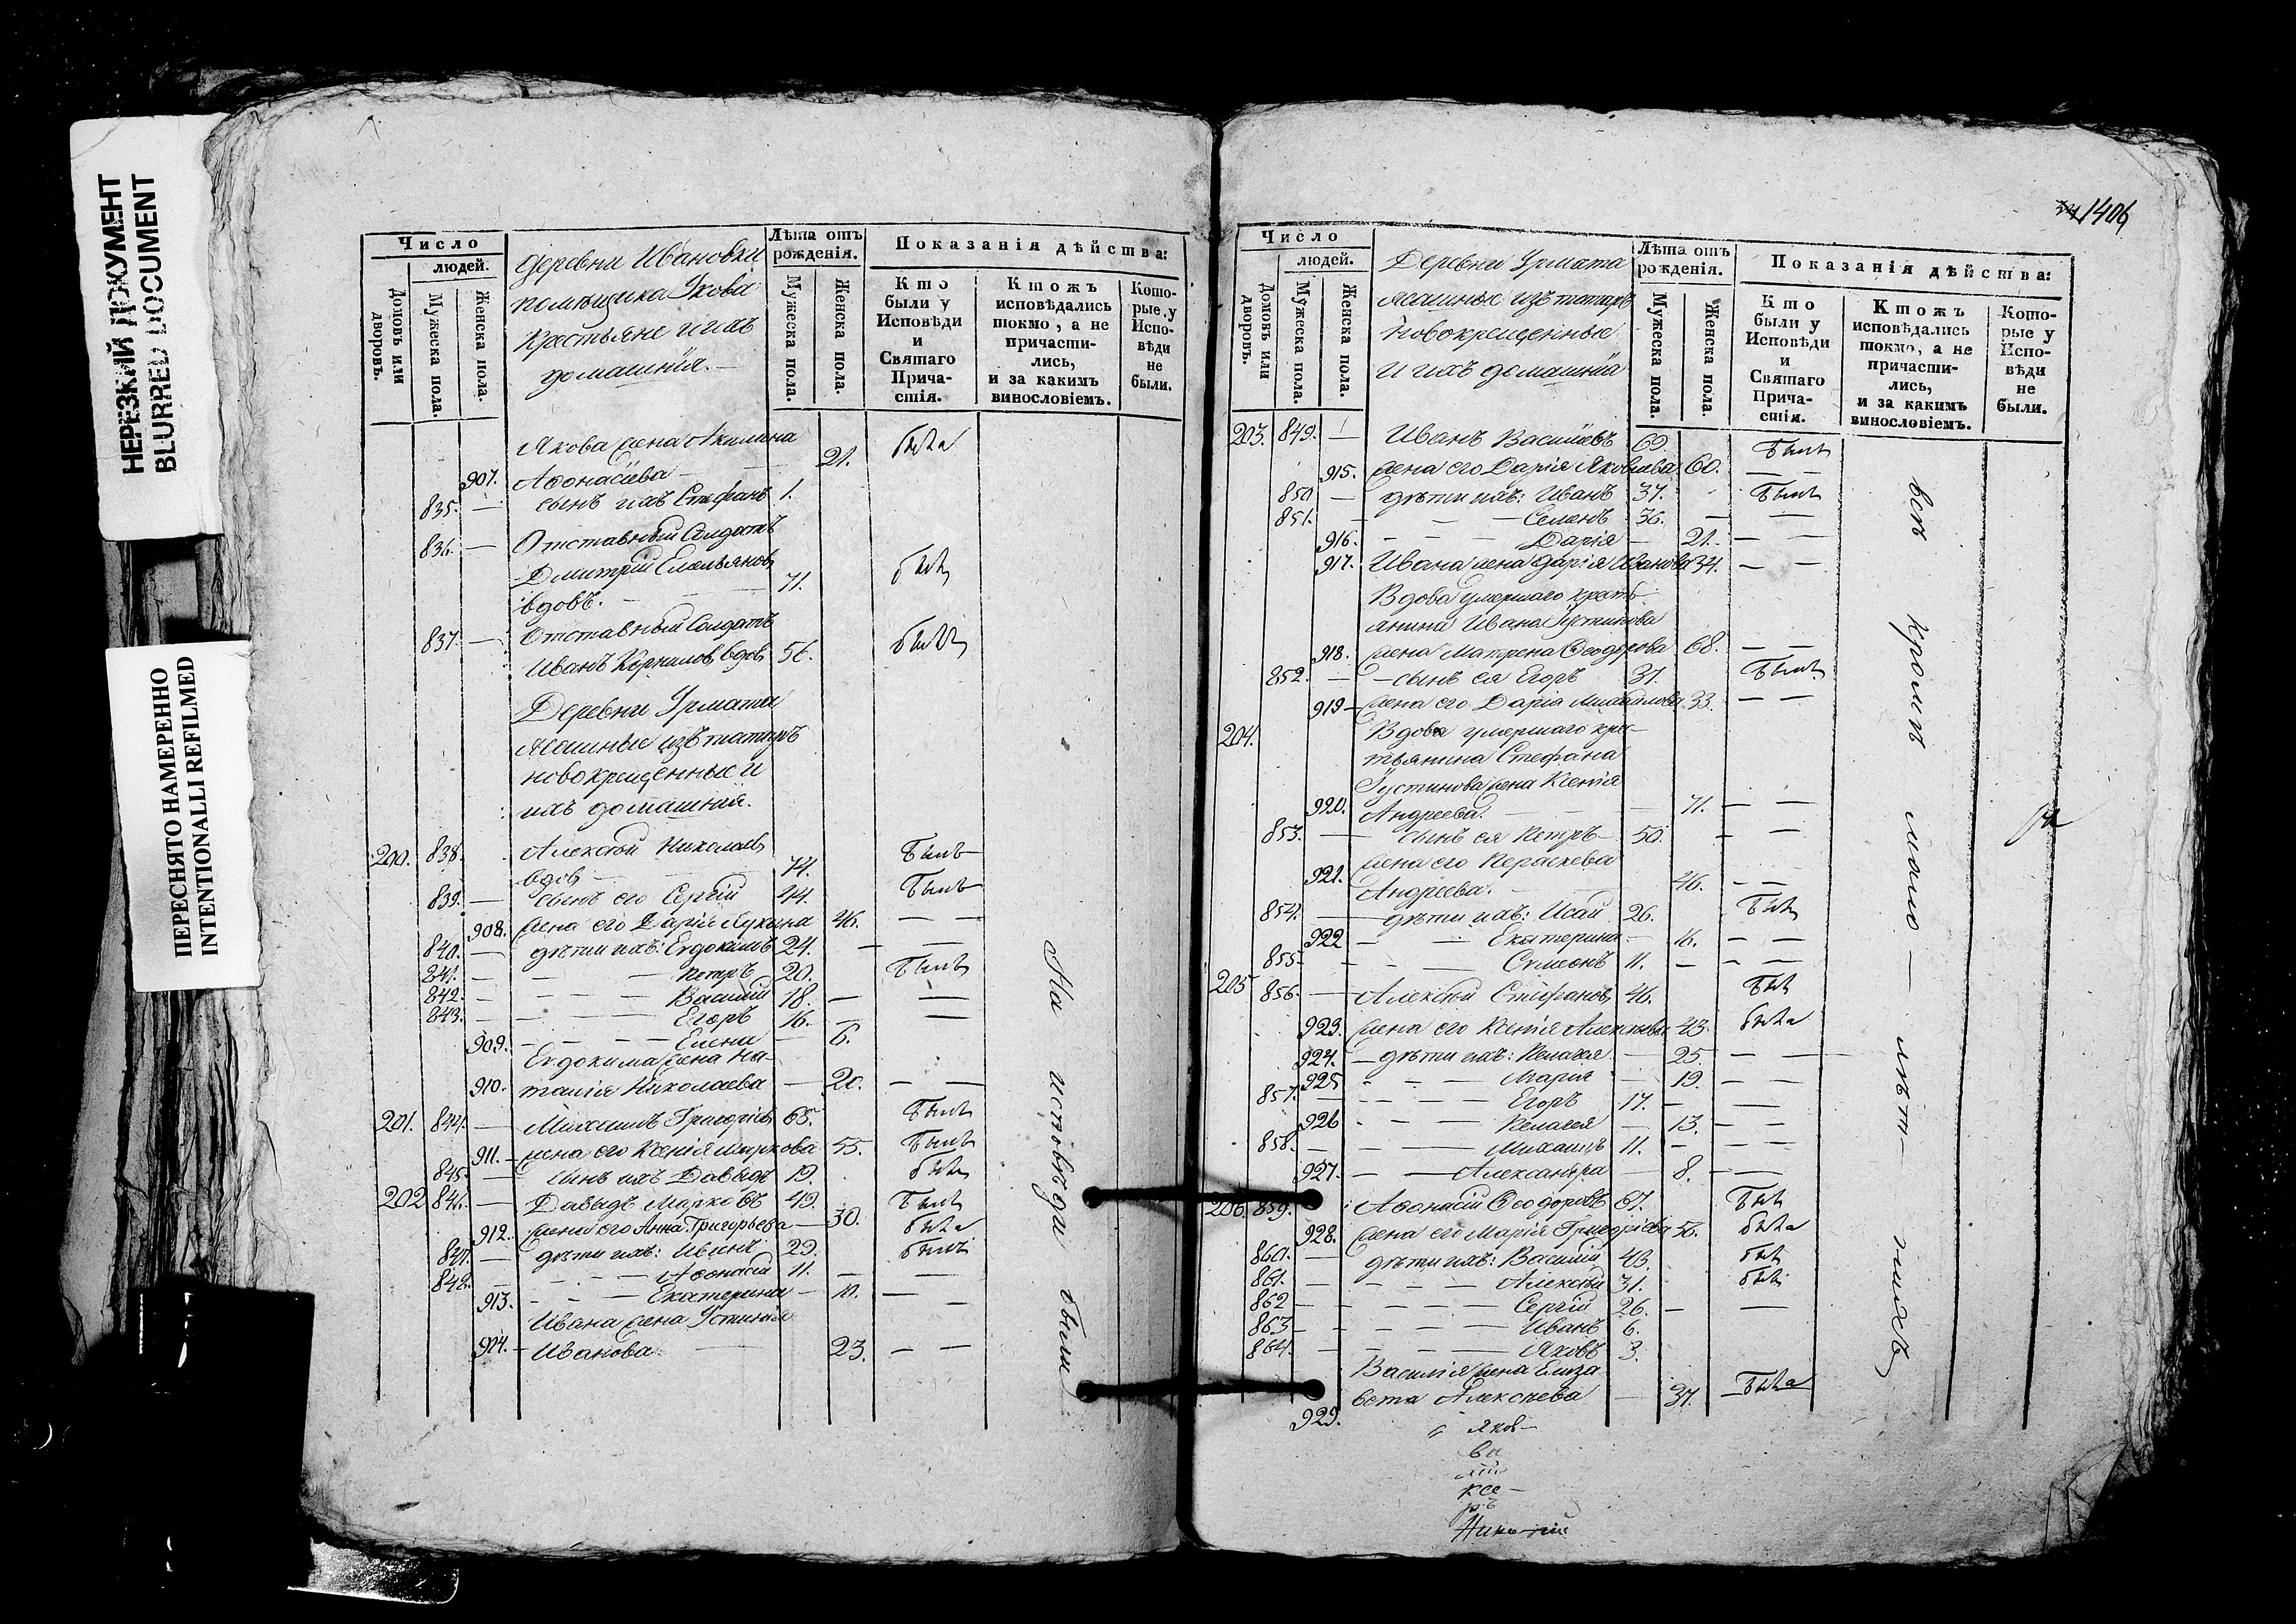 НЕРЕЗКИЙ ДОКУМЕНТ
BLURRED DOCUMENT
ПЕРЕСНЯТО НАМЕРЕННО
INTENTIONALLI REFILMED
Число
людей.
Домовъ или дворовъ.
Мужеска пола.
Женска пола.
деревни Ивановки
помѣщика
Крестьяне и ихъ
домашнія.
Лѣта отъ рожденія.
Мужеска пола.
Женска пола.
Показанія дѣйства:
Кто были у Исповѣди и Святаго Прича-стія.
Ктожъ исповѣдались токмо, а не причасти-лись, и за какимъ винословіемъ.
Кото-рые у Испо-вѣди не были.
Якова жена Акилина
907. Аѳонасіева 21. была
835. — сынъ ихъ Стефанъ 1.
836. — Отставный Солдатъ
Дмитрій Емельяновъ
вдовъ. 71. былъ
837. — Отставный Солдатъ
Иванъ Корниловъ вдовъ 56. былъ
Деревни Урмата
Ясашные изъ татаръ
новокрещенные и
ихъ домашнія.
200. 838. Алексѣй Николаевъ
вдовъ 74. Былъ
839. — сынъ его Сергій 44. Былъ
908. жена его Дарія Лукина 46. — —
840. — дѣти ихъ: Евдокимъ 24. — —
841. — Петръ 20. Былъ
842. — Василій 18. — —
843. — Егоръ 16. — —
909. — Елена — 6.
Евдокима жена На-
910. талія Николаева — 20. — —
201. 844. — Михаилъ Григорьевъ 65. Былъ
911. — жена его Ксенія Маркова 55. Былъ
845. — сынъ ихъ Давыдъ 19. былъ
202 846. — Давыдъ Марковъ 49. Былъ
912. жена его Анна Григорьева — 30. была
847. — дѣти ихъ: Иванъ 29. былъ
848. — Аѳонасій 11. — —
913. — Екатерина — 11. — —
Ивана жена Устинія
914. — Иванова 23. — —
На исповѣди были
1406
Число
людей.
Домовъ или дворовъ.
Мужеска пола.
Женска пола.
Деревни Урмата
ясашные изъ татаръ
новокрещенные
и ихъ домашнія
Лѣта отъ рожденія.
Мужеска пола.
Женска пола.
Показанія дѣйства:
Кто были у Исповѣди и Святаго Прича-стія.
Ктожъ исповѣдались токмо, а не причасти-лись, и за какимъ винословіемъ.
Кото-рые у Испо-вѣди не были.
203. 849. — Иванъ Васильевъ 69. Былъ
915. жена его Дарія Яковлева 60. — —
850 — дѣти ихъ: Иванъ 37. Былъ
851. — Семенъ 36. — —
916. — Дарія — 21. — —
917. Ивана жена Дарія Иванова 34. — —
Вдова умершаго кресть-
янина Ивана Густинова
918. жена Матрена Ѳеодорова 68. — —
852. — сынъ ея Егоръ 31. Былъ
919 — жена его Дарія Михайлова 33. — —
204. Вдова умершаго крес-
тьянина Стефана
Густинова жена Ксенія
920. Андреева. 71. — —
853. — сынъ ея Петръ 50. — —
жена его Параскева
921. Андреева. 46. — —
854. — дѣти ихъ: Исай 26. Былъ
922 — Екатерина — 16. — —
855 — Симеонъ 11. — — —
205 856. — Алексѣй Стефановъ 46. Былъ
923. жена его Ксенія Алексѣева 43. была
924. — дѣти ихъ: Пелагея — 25 — —
925 — Марія — 19. — —
857. — Егоръ 17. — —
926 — Пелагея — 13. — —
858. — Михаилъ 11. — —
927. — Александра — 8. — —
206. 859. Аѳонасій Ѳеодоровъ 67. Былъ
928. жена его Марія Григорьева 56. была
860. — дѣти ихъ: Василій 43. былъ
861. — Алексѣй 31. былъ
862 — Сергій 26. — —
863 — Иванъ 6.
864. — Яковъ 3.
Василія жена Елиза
929. вета Алексѣева — 37. Была
всѣ кромѣ мало — лѣт — нихъ
Яков—
ва
лій
ксе—